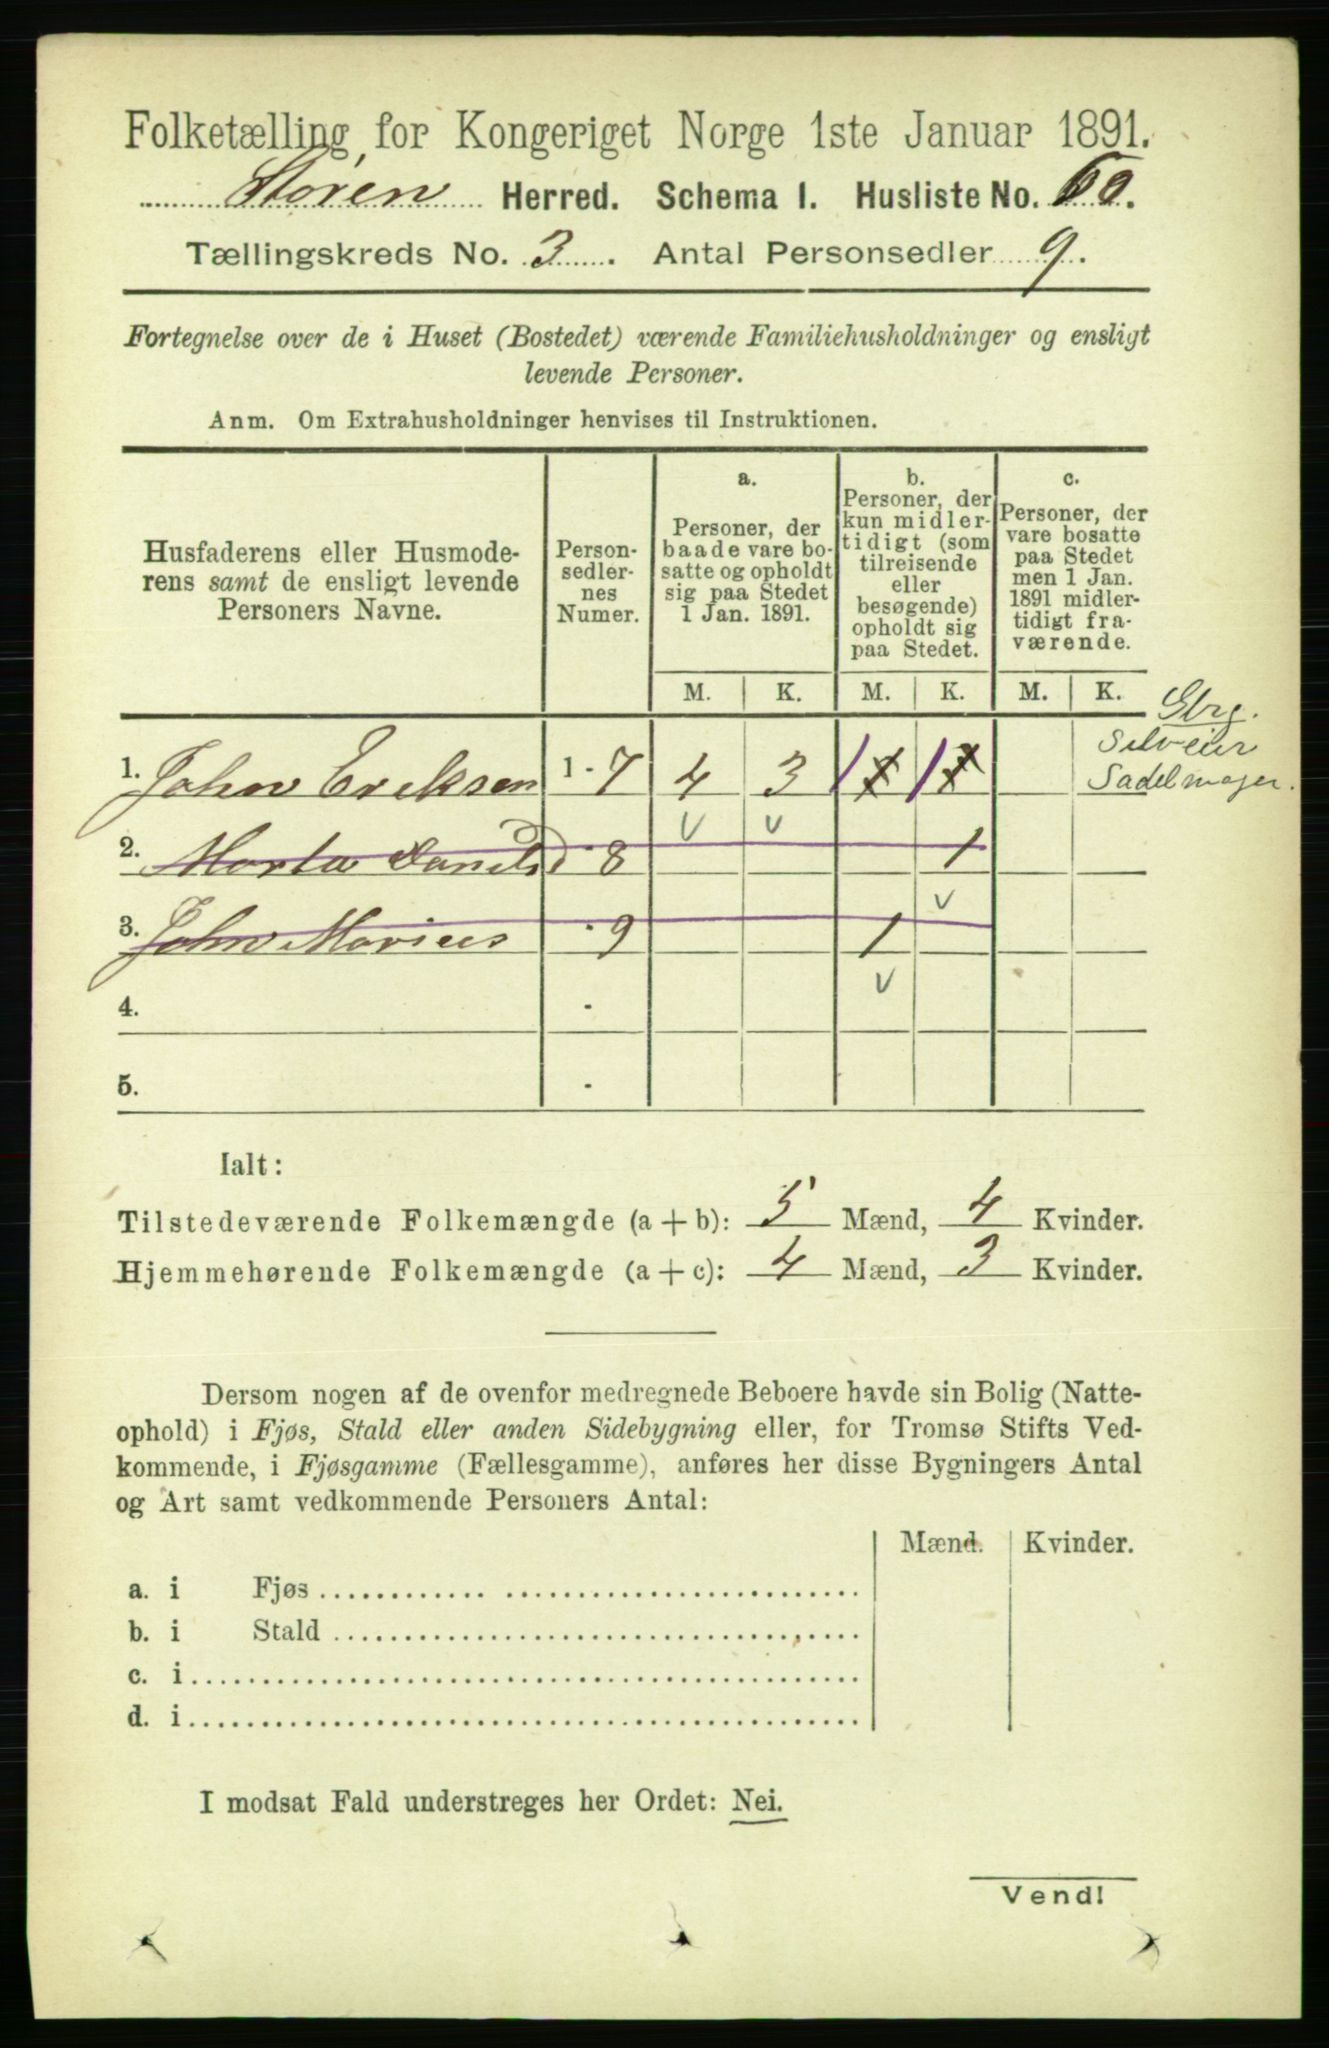 Folketælling for Kongeriget Norge 1ste Januar 1891.
Støren Herred. Schema 1. Husliste No. 60.
Tællingskreds No. 3. Antal Personsedler 9.
Fortegnelse over de i Huset (Bostedet) værende Familiehusholdninger og ensligt
levende Personer.
Anm. Om Extrahusholdninger henvises til Instruktionen.
Husfaderens eller Husmode-
rens samt de ensligt levende
Personers Navne.
Person-
sedler-
nes
Numer.
a.
Personer, der
baade vare bo-
satte og opholdt
sig paa Stedet
1 Jan. 1891.
b.
Personer, der
kun midler-
tidigt (som
tilreisende
eller
besøgende)
opholdt sig
paa Stedet.
c.
Personer, der
vare bosatte
paa Stedet
men 1 Jan.
1891 midler-
tidigt fra-
værende.
M. K. M. K. M. K.
Gbrg.
Selveier
Sadelmager.
1. John Eriksen 1 - 7 4 3 1 1 1 1
v v
2. Marta Danilsd - 8 1
v
3. John Marius - 9 1
v
4. -
5. -
Ialt:
Tilstedeværende Folkemængde (a + b): 5 Mænd, 4 Kvinder.
Hjemmehørende Folkemængde (a + c): 4 Mænd, 3 Kvinder.
Dersom nogen af de ovenfor medregnede Beboere havde sin Bolig (Natte-
ophold) i Fjøs, Stald eller anden Sidebygning eller, for Tromsø Stifts Ved-
kommende, i Fjøsgamme (Fællesgamme), anføres her disse Bygningers Antal
og Art samt vedkommende Personers Antal:
Mænd. Kvinder.
a. i Fjøs
b. i Stald
c. i
d. i
I modsat Fald understreges her Ordet: Nei.
Vend!